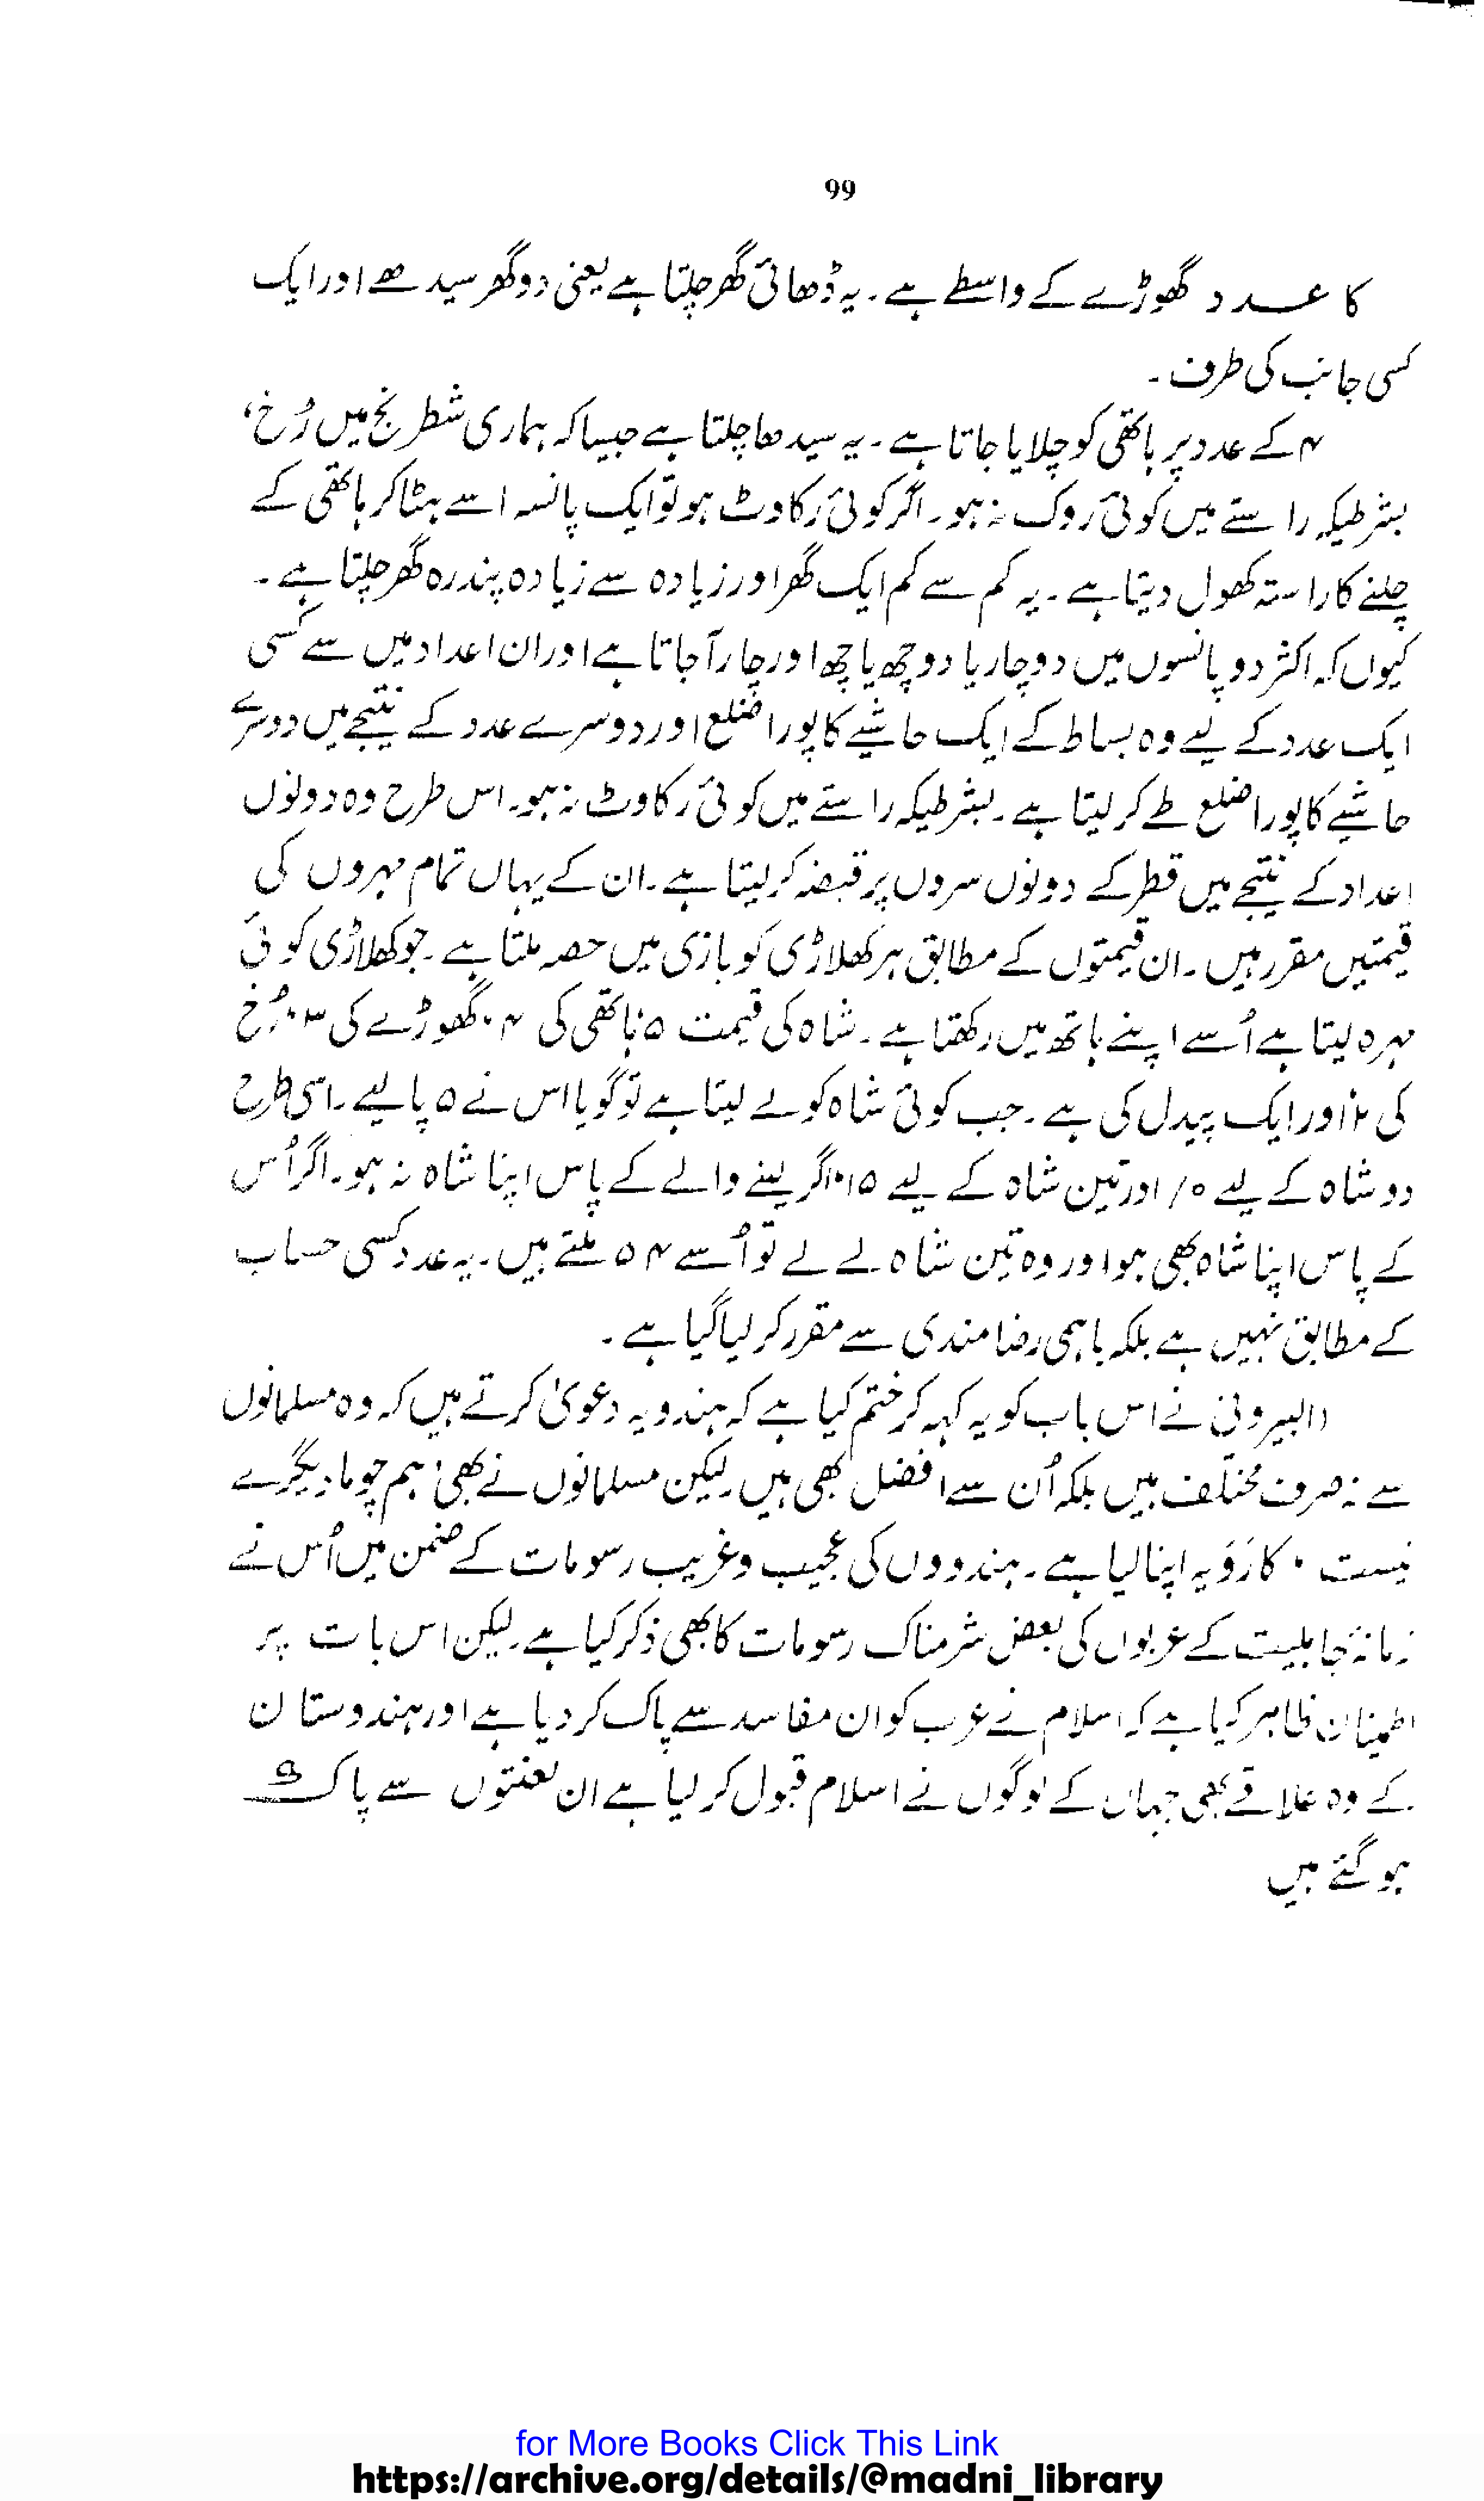 99
کا عدد گھوڑے کے واسطے ہے۔ یہ ڈھائی گھر چلتا ہے یعنی دو گھر سیدھے اور ایک
کسی جانب کی طرف۔
۴ کے عدد پر ہاتھی کو چلایا جاتا ہے۔ یہ سیدھا چلتا ہے جیسا کہ ہماری شطرنج میں رُخ،
بشرطیکہ راستے میں کوئی روک نہ ہو۔ اگر کوئی رکاوٹ ہو تو ایک پانسہ اسے ہٹا کر ہاتھی کے
چلنے کا راستہ کھول دیتا ہے۔ یہ کم سے کم ایک گھر اور زیادہ سے زیادہ پندرہ گھر چلتا ہے۔
کیوں کہ اکثر دو پانسوں میں دو چار یا دو چھ یا چھ اور چار آ جاتا ہے اور ان اعداد میں سے کسی
ایک عدد کے لیے وہ بساط کے ایک حاشیے کا پورا ضلع اور دوسرے عدد کے نتیجے میں دوسرے
حاشیے کا پورا ضلع طے کر لیتا ہے۔ بشرطیکہ راستے میں کوئی رکاوٹ نہ ہو۔ اس طرح وہ دونوں
اعداد کے نتیجے میں قطر کے دونوں سروں پر قبضہ کر لیتا ہے۔ ان کے یہاں تمام مہروں کی
قیمتیں مقرر ہیں۔ ان قیمتوں کے مطابق ہر کھلاڑی کو بازی میں حصہ ملتا ہے۔ جو کھلاڑی کوئی
مہرہ لیتا ہے اُسے اپنے ہاتھ میں رکھتا ہے۔ شاہ کی قیمت ۵ ہاتھی کی ۴، گھوڑے کی ۳، رُخ
کی ۲ اور ایک پیدل کی ہے۔ جب کوئی شاہ کو لے لیتا ہے تو گویا اس نے ۵ پا لیے۔ اسی طرح
دو شاہ کے لیے ۱۰ اور تین شاہ کے لیے ۱۵، اگر لینے والے کے پاس اپنا شاہ نہ ہو۔ اگر اُس
کے پاس اپنا شاہ بھی ہو اور وہ تین شاہ لے لے تو اُسے ۵۴ ملتے ہیں۔ یہ عدد کسی حساب
کے مطابق نہیں ہے بلکہ باہمی رضا مندی سے مقرر کر لیا گیا ہے۔
(البیرونی نے اس باب کو یہ کہہ کر ختم کیا ہے کہ ہندو یہ دعویٰ کرتے ہیں کہ وہ مسلمانوں
سے نہ صرف مختلف ہیں بلکہ اُن سے افضل بھی ہیں۔ لیکن مسلمانوں نے بھی 'ہم چو ما دیگرے
نیست' کا رَوَیہ اپنا لیا ہے۔ ہندووں کی عجیب و غریب رسومات کے ضمن میں اُس نے
زمانۂ جاہلیت کے عربوں کی بعض شرمناک رسومات کا بھی ذکر کیا ہے۔ لیکن اس بات پر
اطمینان ظاہر کیا ہے کہ اسلام نے عرب کو ان مفاسد سے پاک کر دیا ہے اور ہندوستان
کے وہ علاقے بھی جہاں کے لوگوں نے اسلام قبول کر لیا ہے ان لعنتوں سے پاک
ہو گئے ہیں
for More Books Click This Link
https://archive.org/details/@madni_library